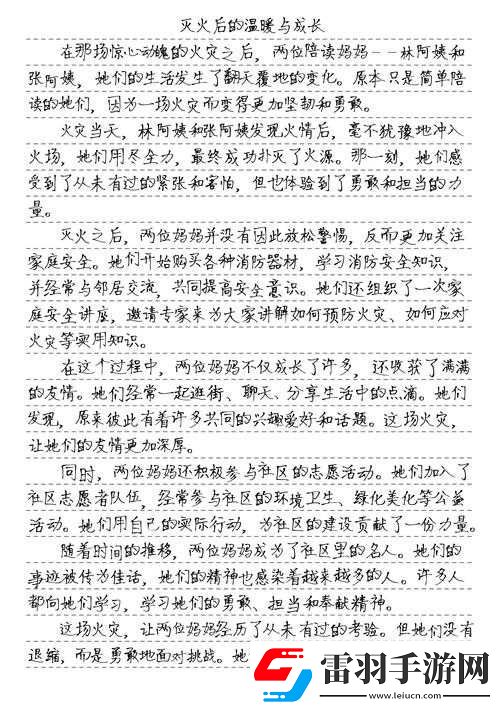 灭火后的温暖与成长
在那场惊心动魄的火灾之后，两位陪读妈妈——林阿姨和
张阿姨，她们的生活发生了翻天覆地的变化。原本只是简单陪
读的她们，因为一场火灾而变得更加坚韧和勇敢。
火灾当天，林阿姨和张阿姨发现火情后，毫不犹豫地冲入
火场，她们用尽全力，最终成功扑灭了火源。那一刻，她们感
受到了从未有过的紧张和害怕，但也体验到了勇敢和担当的力
量。
灭火之后，两位妈妈并没有因此放松警惕，反而更加关注
家庭安全。她们开始购买各种消防器材，学习消防安全知识，
并经常与邻居交流，共同提高安全意识。她们还组织了一次家
庭安全讲座，邀请专家来为大家讲解如何预防火灾、如何应对
火灾等实用知识。
在这个过程中，两位妈妈不仅成长了许多，还收获了满满
的友情。她们经常一起逛街、聊天、分享生活中的点滴。她们
发现，原来彼此有着许多共同的兴趣爱好和话题。这场火灾，
让她们的友情更加深厚。
同时，两位妈妈还积极参与社区的志愿活动。她们加入了
社区志愿者队伍，经常参与社区的环境卫生、绿化美化等公益
活动。她们用自己的实际行动，为社区的建设贡献了一份力量。
随着时间的推移，两位妈妈成为了社区里的名人。她们的
事迹被传为佳话，她们的精神也感染着越来越多的人。许多人
都向她们学习，学习她们的勇敢、担当和奉献精神。
这场火灾，让两位妈妈经历了从未有过的考验。但她们没有
退缩，而是勇敢地面对挑战。她
雷羽手游网
www.leiucn.com